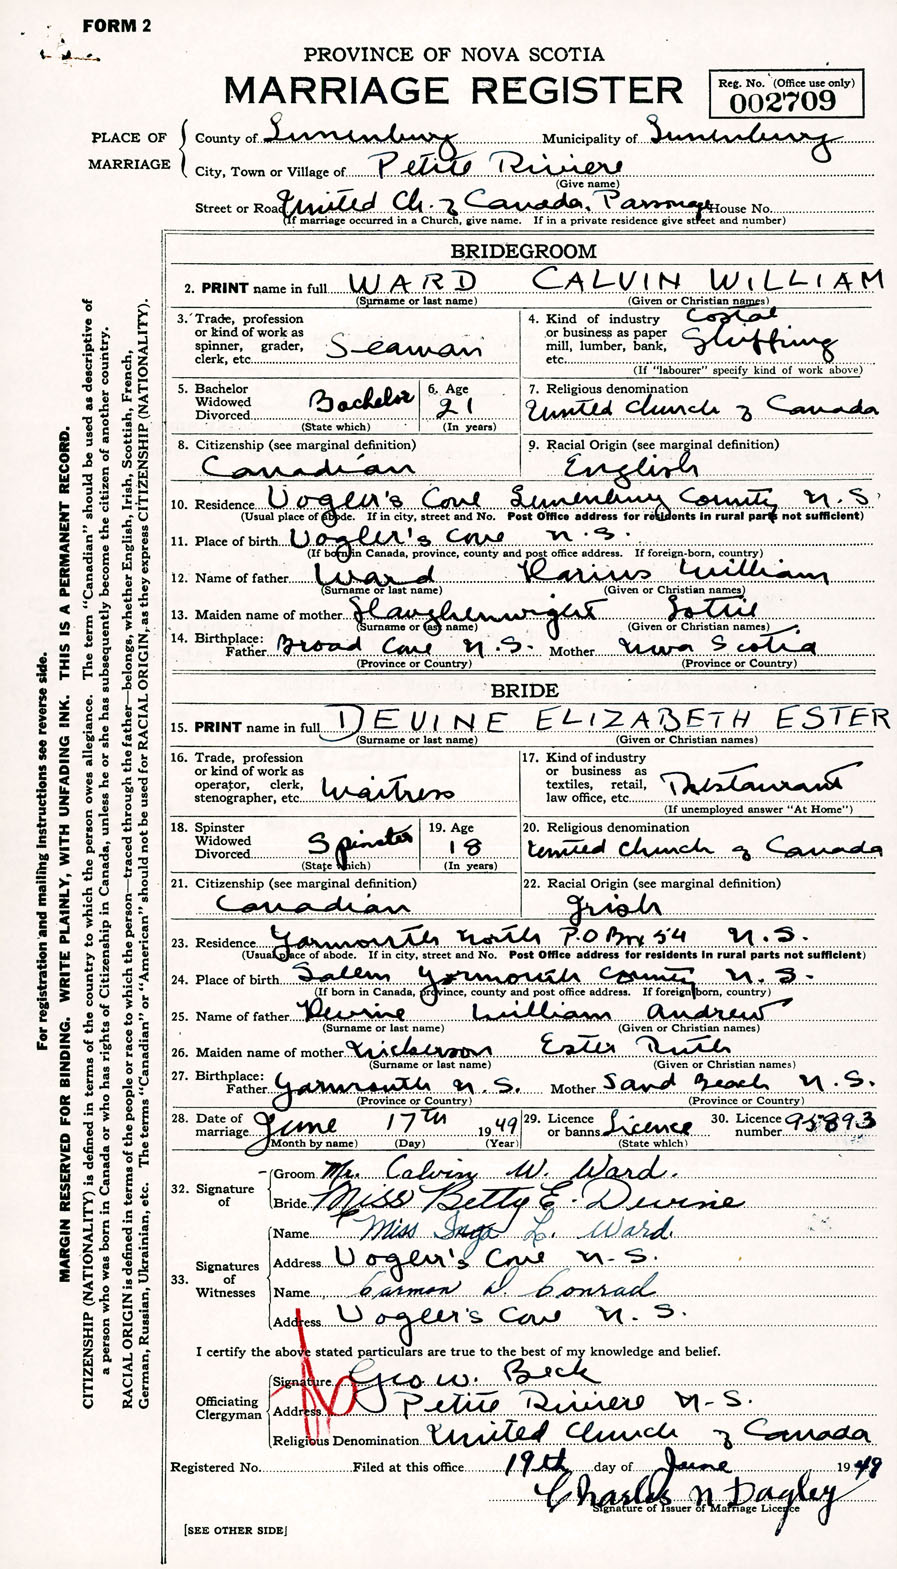 FORM 2
PROVINCE OF NOVA SCOTIA
MARRIAGE REGISTER
Reg. No. (Office use only)
002709
PLACE OF MARRIAGE
County of Lunenburg Municipality of Lunenburg
City, Town or Village of Petite Riviere
(Give name)
Street or Road United Ch. of Canada, Parsonage House No.
(If marriage occurred in a Church, give name. If in a private residence give street and number)
BRIDEGROOM
2. PRINT name in full WARD CALVIN WILLIAM
(Surname or last name) (Given or Christian names)
3. Trade, profession or kind of work as spinner, grader, clerk, etc. Seaman
4. Kind of industry or business as paper mill, lumber, bank, etc. Costal Shipping
(If "labourer" specify kind of work above)
5. Bachelor Widowed Divorced Bachelor
(State which)
6. Age 21
(In years)
7. Religious denomination
United Church of Canada
8. Citizenship (see marginal definition)
Canadian
9. Racial Origin (see marginal definition)
English
10. Residence Vogler's Cove Lunenburg County N.S.
(Usual place of abode. If in city, street and No. Post Office address for residents in rural parts not sufficient)
11. Place of birth Vogler's Cove N.S.
(If born in Canada, province, county and post office address. If foreign-born, country)
12. Name of father Ward Darius William
(Surname or last name) (Given or Christian names)
13. Maiden name of mother Slaughenwight Lottie
(Surname or last name) (Given or Christian names)
14. Birthplace: Father Broad Cove N.S. Mother Nova Scotia
(Province or Country) (Province or Country)
BRIDE
15. PRINT name in full DEVINE ELIZABETH ESTER
(Surname or last name) (Given or Christian names)
16. Trade, profession or kind of work as operator, clerk, stenographer, etc. Waitress
17. Kind of industry or business as textiles, retail, law office, etc. Restaurant
(If unemployed answer "At Home")
18. Spinster Widowed Divorced Spinster
(State which)
19. Age 18
(In years)
20. Religious denomination
United Church of Canada
21. Citizenship (see marginal definition)
Canadian
22. Racial Origin (see marginal definition)
Irish
23. Residence Yarmouth North P.O Box 54 N.S.
(Usual place of abode. If in city, street and No. Post Office address for residents in rural parts not sufficient)
24. Place of birth Salem Yarmouth County N.S.
(If born in Canada, province, county and post office address. If foreign born, country)
25. Name of father Devine William Andrew
(Surname or last name) (Given or Christian names)
26. Maiden name of mother Nickerson Ester Ruth
(Surname or last name) (Given or Christian names)
27. Birthplace: Father Yarmouth N.S. Mother Sand Beach N.S.
(Province or Country) (Province or Country)
28. Date of marriage June 17th 1949
(Month by name) (Day) (Year)
29. Licence or banns Licence
(State which)
30. Licence number 95893
32. Signature of
Groom Mr. Calvin W. Ward.
Bride Miss Betty E. Devine
33. Signatures of Witnesses
Name Miss Inga L. Ward.
Address Vogler's Cove N.S.
Name Carmon D. Conrad
Address Vogler's Cove N.S.
I certify the above stated particulars are true to the best of my knowledge and belief.
Officiating Clergyman
Signature Geo W. Beck
Address Petite Riviere N.S.
Religious Denomination United Church of Canada
Registered No. Filed at this office 19th day of June 1949
Charles N Dagley
Signature of Issuer of Marriage Licence
[SEE OTHER SIDE]
For registration and mailing instructions see reverse side.
MARGIN RESERVED FOR BINDING. WRITE PLAINLY, WITH UNFADING INK. THIS IS A PERMANENT RECORD.
CITIZENSHIP (NATIONALITY) is defined in terms of the country to which the person owes allegiance. The term "Canadian" should be used as descriptive of
a person who was born in Canada or who has rights of Citizenship in Canada, unless he or she has subsequently become the citizen of another country.
RACIAL ORIGIN is defined in terms of the people or race to which the person—traced through the father—belongs, whether English, Irish, Scottish, French,
German, Russian, Ukrainian, etc. The terms "Canadian" or "American" should not be used for RACIAL ORIGIN, as they express CITIZENSHIP (NATIONALITY).